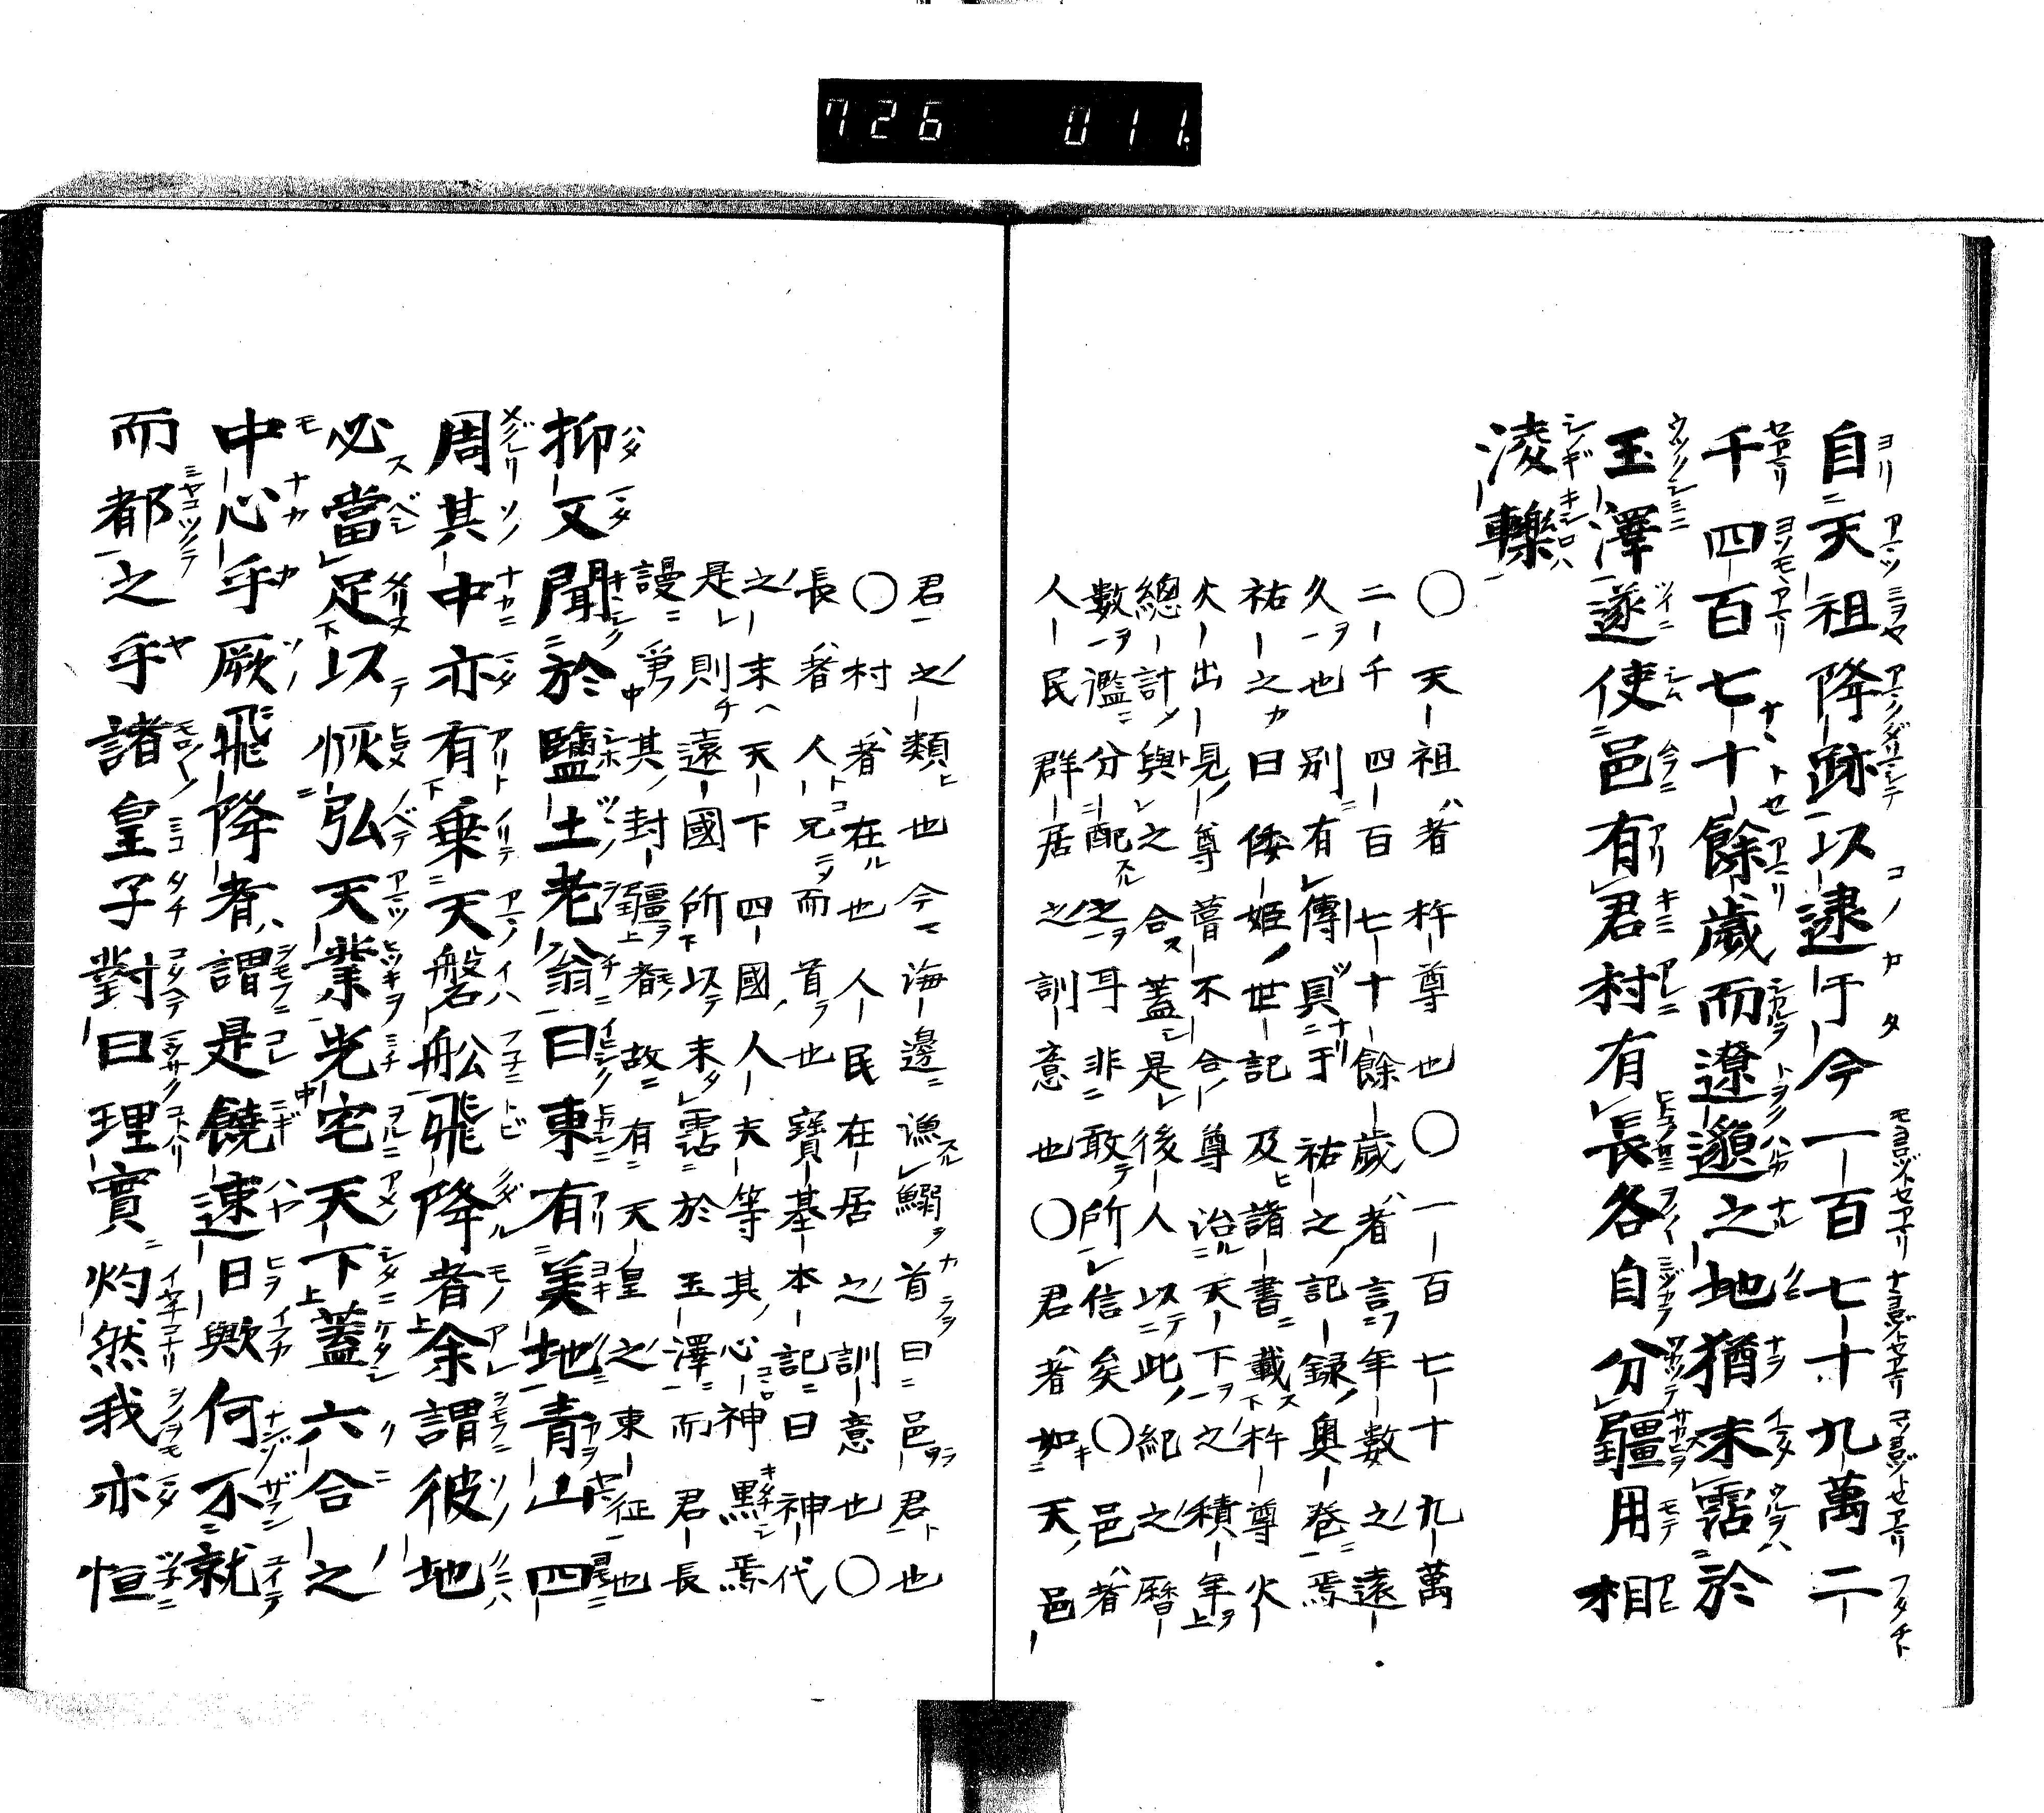 726 011
自天祖降跡以逮于今一百七十九萬二
千四百七十餘歲而遼邈之地猶未霑於
玉澤遂使邑有君村有長各自分疆用相
淩轢
〇天祖者杵尊也〇一百七十九萬
二千四百七十餘歲者言年數之遠
久也別有傳具于祐之記録奥卷焉
祐之曰倭姬世記及諸書載杵尊火
火出見尊葺不合尊治天下之積年
總計與之合蓋是後人以此紀之曆
數濫分配之耳非敢所信矣〇邑者
人民群居之訓意也〇君者如天邑
君之類也今海邊漁鰯首曰邑君也
〇村者在也人民在居之訓意也〇
長者人兄而首也寶基本記曰神代
之末天下四國人夫等其心神黙焉
是則遠國所以未霑於玉澤而君長
謾爭其封疆者故有天皇之東征也
抑又聞於鹽土老翁曰東有美地青山四
周其中亦有乗天磐船飛降者余謂彼地
必當足以恢弘天業光宅天下蓋六合之
中心乎厥飛降者謂是饒速日歟何不就
而都之乎諸皇子對曰理實灼然我亦恒